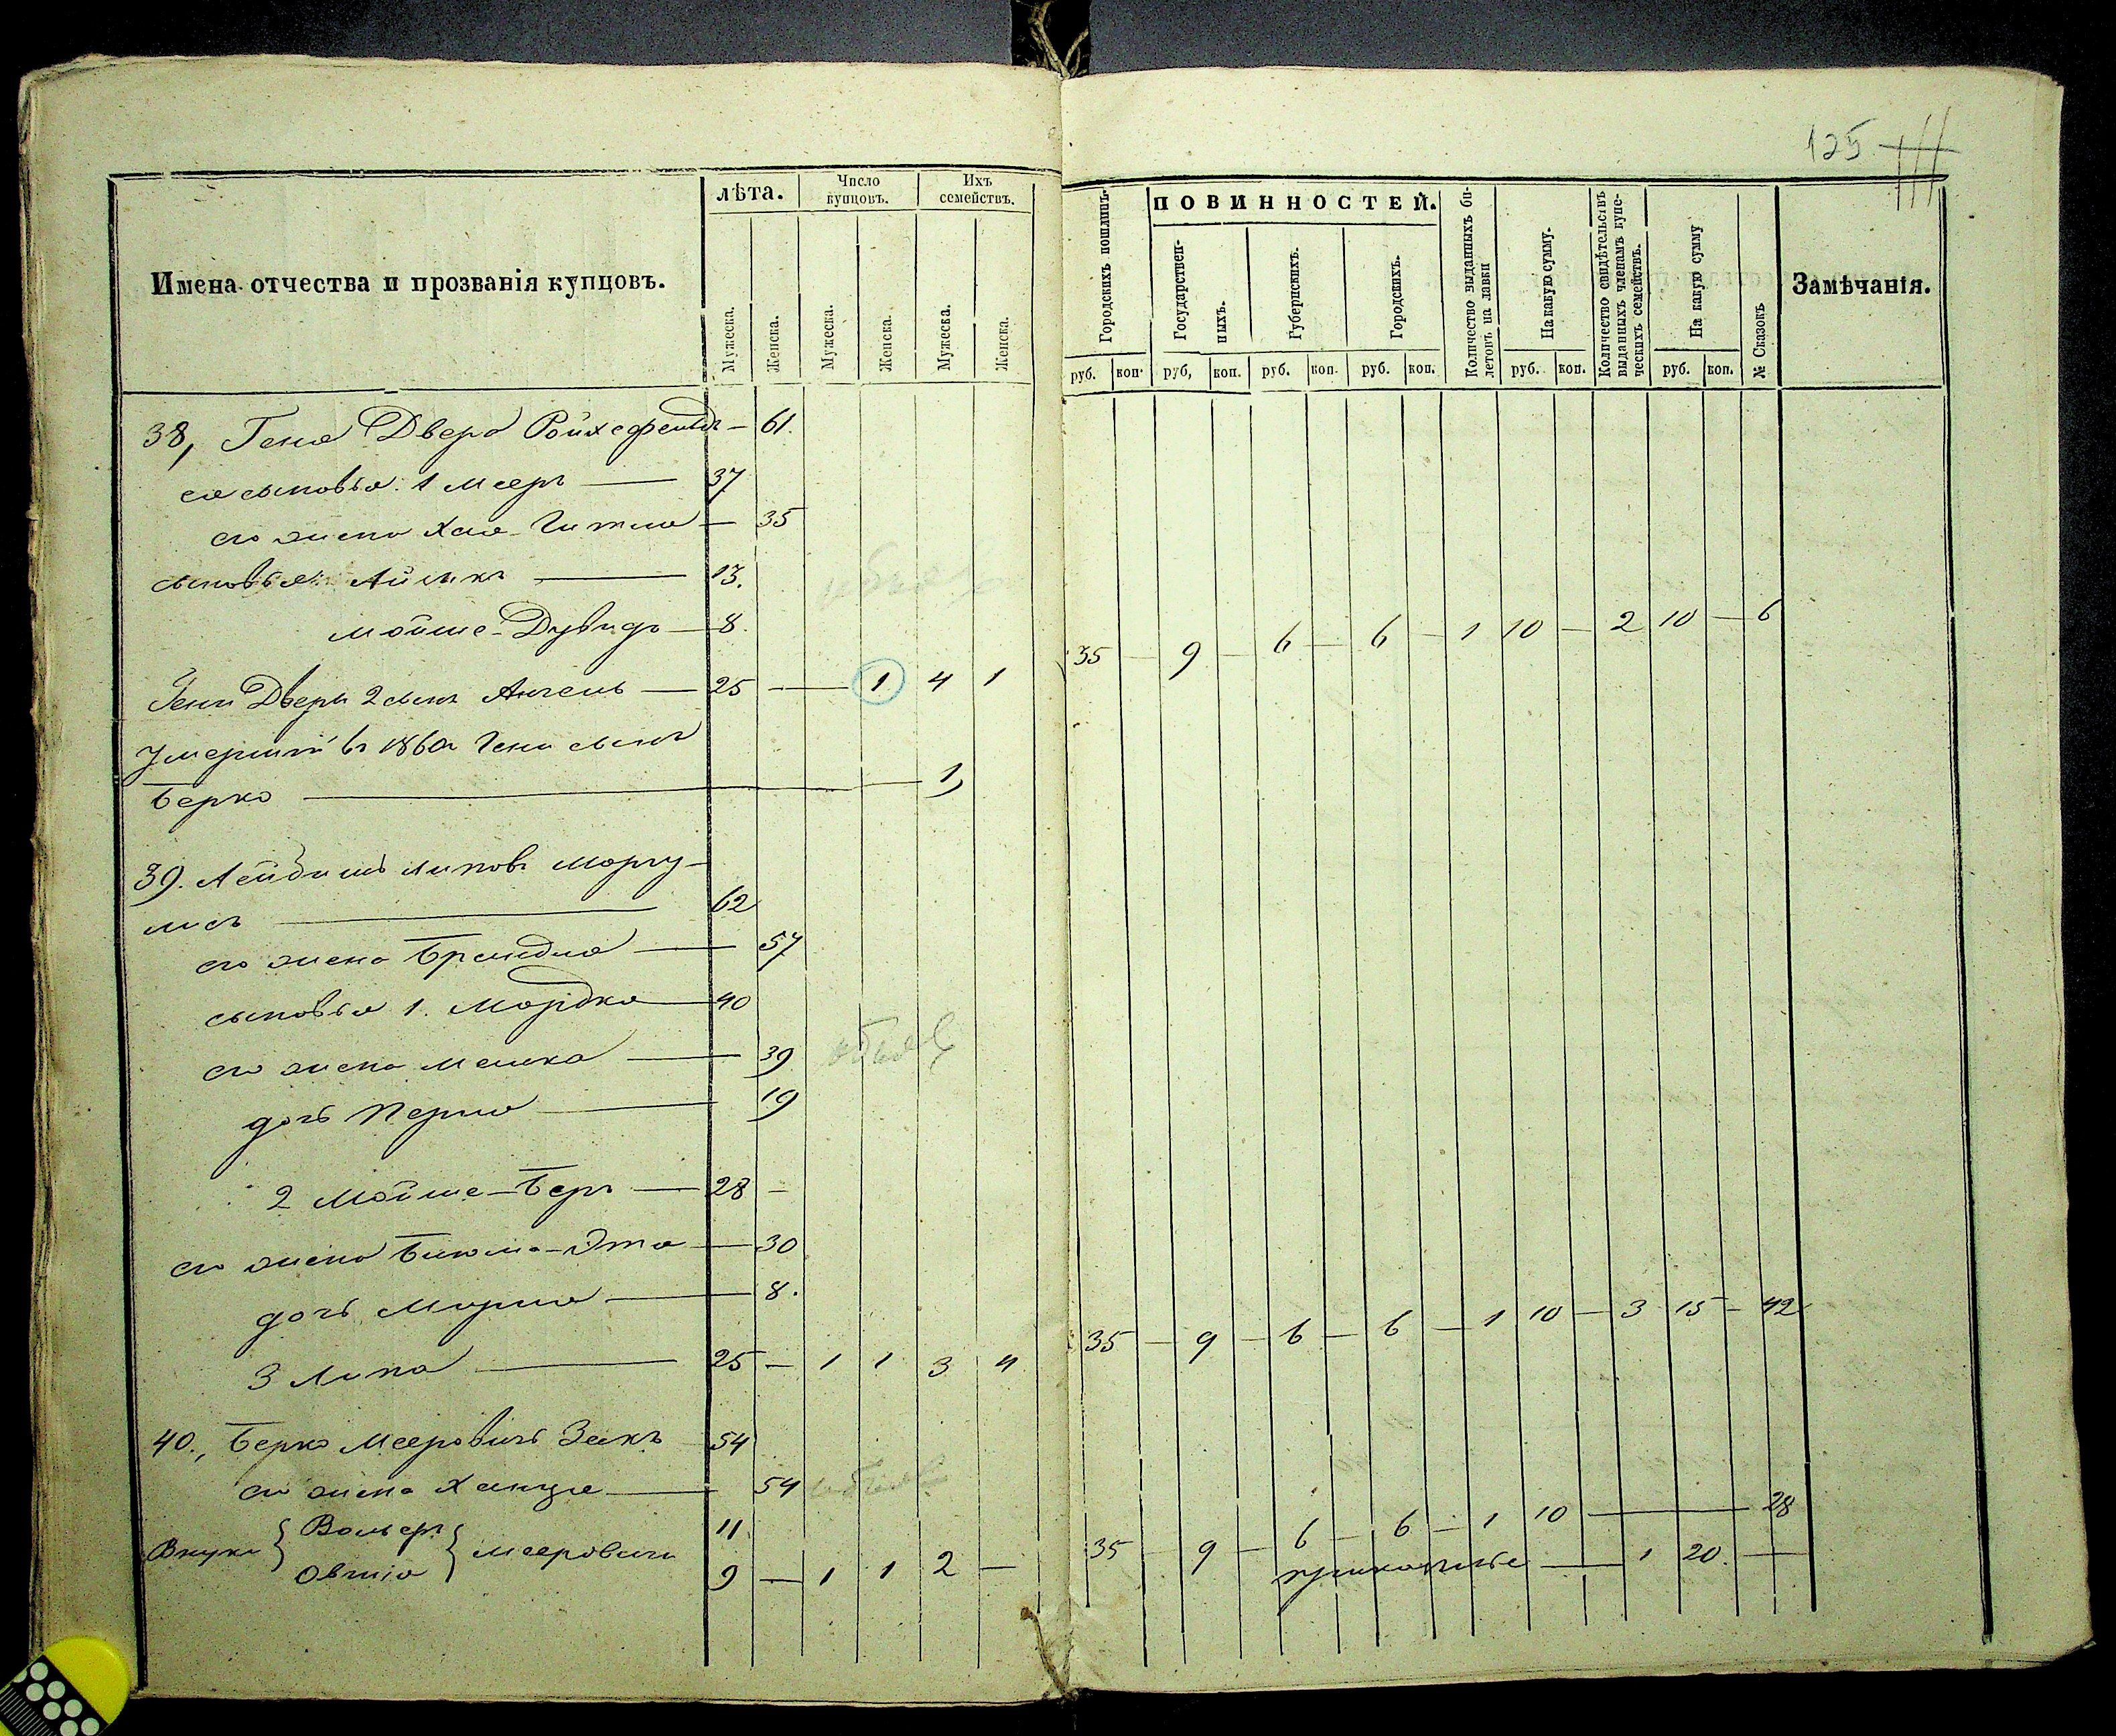 125
Имена отчества и прозванія купцовъ.
лѣта.
Число купцовъ.
Ихъ семействъ.
Мужеска.
Женска.
Мужеска.
Женска.
Мужеска.
Женска.
Городскихъ пошлинъ.
ПОВИННОСТЕЙ.
Государственныхъ.
Губернскихъ.
Городскихъ.
Количество выданныхъ билетовъ на лавки
На какую сумму.
Количество свидѣтельствъ выданныхъ членамъ купеческихъ семействъ.
На какую сумму
№ Сказокъ
Замѣчанія.
руб. коп. руб. коп. руб. коп. руб. коп. руб. коп. руб. коп.
38, Геня Двера — 61.
ея сыновья. 1 Мееръ — 37
его жена Хая Гитля — 35
сыновья: — 13.
Мойше-Дувидъ — 8.
Гени Двери 2 сынъ — 25 — — 1 4 1
35 — 9 — 6 — 6 — 1 10 — 2 10 — 6
Умершій въ 1860 Гени сынъ
Берко — 1
39. Лейбишъ Липовъ Маргу-
лисъ — 62
его жена Брейндля — 57
сыновья 1. Мордко — 40
его жена — 39
дочь Перля — 19
2 Мойше-Беръ — 28 —
его жена — 30
дочь — 8.
3 Липа — 25 — 1 1 3 4
35 — 9 — 6 — 6 — 1 10 — 3 15 — 42
40., Берко Мееровичъ Закъ 54
его жена — 54
Внуки { Вольфъ } Мееровичи 11
Овшія 9 — 1 1 2 —
35 — 9 — 6 — 6 — 1 10 — 28
— 1 20. —